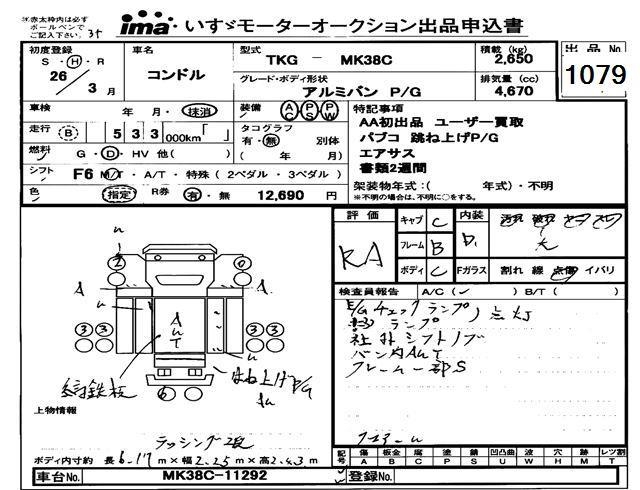 ※赤太枠内は必ず
ボールペンで
ご記入下さい。
ima いすゞモーターオークション出品申込書
初度登録
S・H・R
26年 3月
車名
コンドル
型式
TKG － MK38C
グレード・ボディ形状
アルミバン P/G
積載 (kg)
2,650
排気量 (cc)
4,670
出品No.
1079
車検 年・月・抹消
装備 AC PS PW
走行 B 533 000km「 」
タコグラフ
有・無 別体
( 年 月)
燃料 G・D・HV 他( )
シフト F6 M/T・A/T・特殊(2ペダル・3ペダル)
色 指定 R券 有・無 12,690 円
特記事項
AA初出品 ユーザー買取
パブコ 跳ね上げP/G
エアサス
書類2週間
架装物年式:( 年式)・不明
※不明の場合は、不明に○をする。
評価 RA
キャブ C
フレーム B
ボディ C
内装 D
Fガラス 割れ 線 点傷 イバリ
検査員報告 A/C(✓) B/T( )
E/Gチェックランプ
ランプ 点灯
社外シフトノブ
バン内AUT
フレーム一部S
2 0
A A
u u
A
U
T
3 3 3 3
6
縞鉄板
はね上げP/G
上物情報
ラッシング2段
ボディ内寸約 長6.17m×幅2.25m×高2.43m
記号 傷A 板金B 腐C 塗P 錆S 凹凸曲U 波W 穴H 跡M レツ割T
車台No. MK38C-11292
登録No.